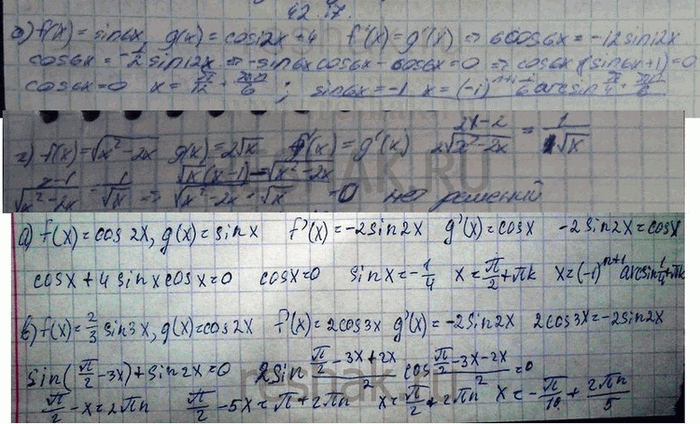 42.17.
б) f(x)=sin6x g(x)=cos12x+4 f'(x)=g'(x) ⇒ 6cos6x=-12sin12x
cos6x=-1/2 sin12x ⇒ -sin6x cos6x - cos6x=0 ⇒ cos6x(sin6x+1)=0
cos6x=0 x=π/12+πn/6 ; sin6x=-1 x=(-1)
г) f(x)=√x²-2x g(x)=2√x f'(x)=g'(x) 2x-2/2√x²-2x = 1/√x
x-1/√x²-2x - 1/√x ⇒ √x(x-1)-√x²-2x/√x²-2x·√x =0 нет решений
а) f(x)=cos2x, g(x)=sinx f'(x)=-2sin2x g'(x)=cosx -2sin2x=cosx
cosx+4sinxcosx=0 cosx=0 sinx=-1/4 x=π/2+πk x=(-1)ⁿ⁺¹ arcsin1/4+πk
в) f(x)=2/3 sin3x, g(x)=cos2x f'(x)=2cos3x g'(x)=-2sin2x 2cos3x=-2sin2x
sin(π/2-3x)+sin2x=0 2sin π/2-3x+2x/2 cos π/2-3x-2x/2=0
π/2-x=2πn π/2-5x=π+2πn x=π/2+2πn x=-π/10+2πn/5